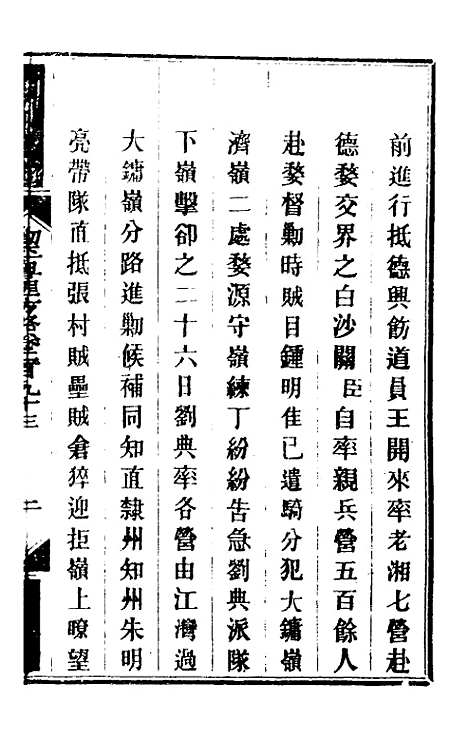 前進行抵德興飭道員王開來率老湘七營赴
德婺交界之白沙關臣自率親兵營五百餘人
赴婺督勦時賊目鍾明佳已遣騎分犯大鏞嶺
濟嶺二處婺源守嶺練丁紛紛告急劉典派隊
下嶺擊卻之二十六日劉典率各營由江灣過
大鏞嶺分路進勦候補同知直隸州知州朱明
亮帶隊直抵張村賊壘賊倉猝迎拒嶺上瞭望